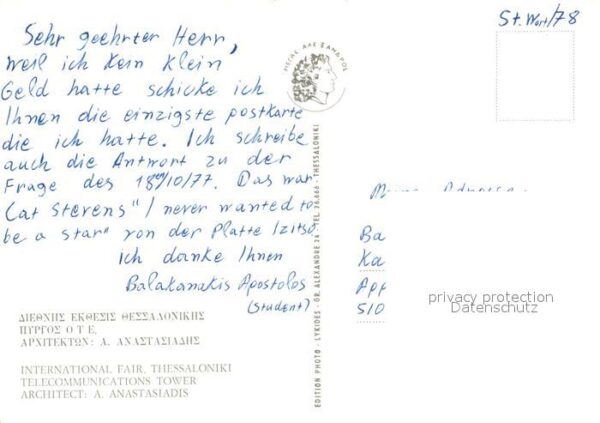 St. Wort/78
Sehr geehrter Herr,
weil ich kein klein
Geld hatte schicke ich
Ihnen die einzigste postkarte
die ich hatte. Ich schreibe
auch die Antwort zu der
Frage des 18er/10/77. Das war
Cat Stevens" I never wanted to
be a star" von der Platte Izitso.
ich danke Ihnen
Balakanakis Apostolos
(Student)
ΜΕΓΑΣ ΑΛΕΞΑΝΔΡΟΣ
EDITION PHOTO - LYKIDES - GR. ALEXANDRE 24 - TEL. 26.666 - THESSALONIKI
Ba
Ka
App
510
privacy protection
Datenschutz
ΔΙΕΘΝΗΣ ΕΚΘΕΣΙΣ ΘΕΣΣΑΛΟΝΙΚΗΣ
ΠΥΡΓΟΣ Ο Τ Ε,
ΑΡΧΙΤΕΚΤΩΝ: Α. ΑΝΑΣΤΑΣΙΑΔΗΣ
INTERNATIONAL FAIR, THESSALONIKI
TELECOMMUNICATIONS TOWER
ARCHITECT: A. ANASTASIADIS